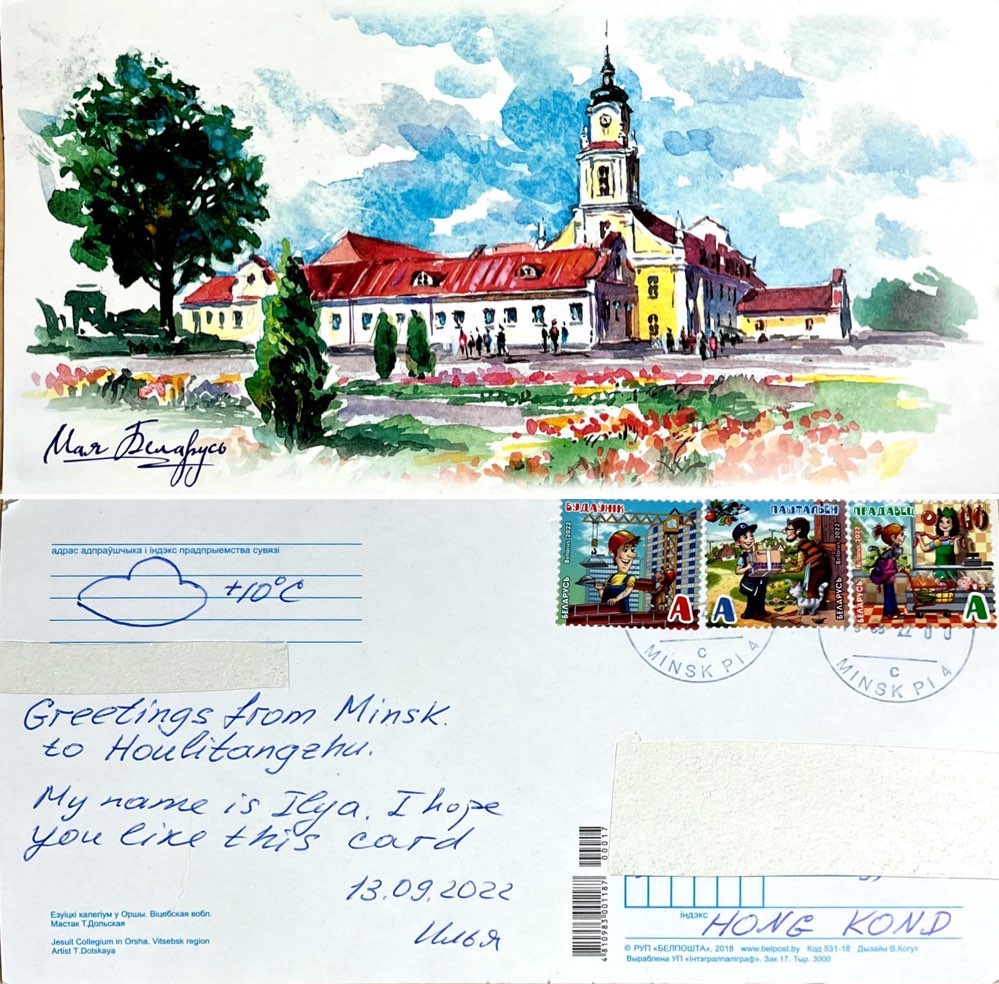 Мая Беларусь
адрас адпраўшчыка і індэкс прадпрыемства сувязі
+10°C
БУДАЎНІК
БЕЛАРУСЬ
Belarus 2022
A
ПАШТАЛЬЁН
Belarus 2022
БЕЛАРУСЬ
A
ПРАДАВЕЦ
Belarus 2022
БЕЛАРУСЬ
A
C
MINSK PI 4
22 00
C
MINSK PI 4
Greetings from Minsk.
to Houlitangzhu.
My name is Ilya. I hope
you like this card
13.09.2022
Илья
Езуіцкі калегіум у Оршы. Віцебская вобл.
Мастак Т.Дольская
Jesuit Collegium in Orsha. Vitsebsk region
Artist T.Dolskaya
00017
4810983001187
індэкс
HONG KOND
© РУП «БЕЛПОШТА», 2018 www.belpost.by Код 531-18 Дызайн В.Когут
Выраблена УП «Інтэгралпаліграф». Зак.17. Тыр. 3000